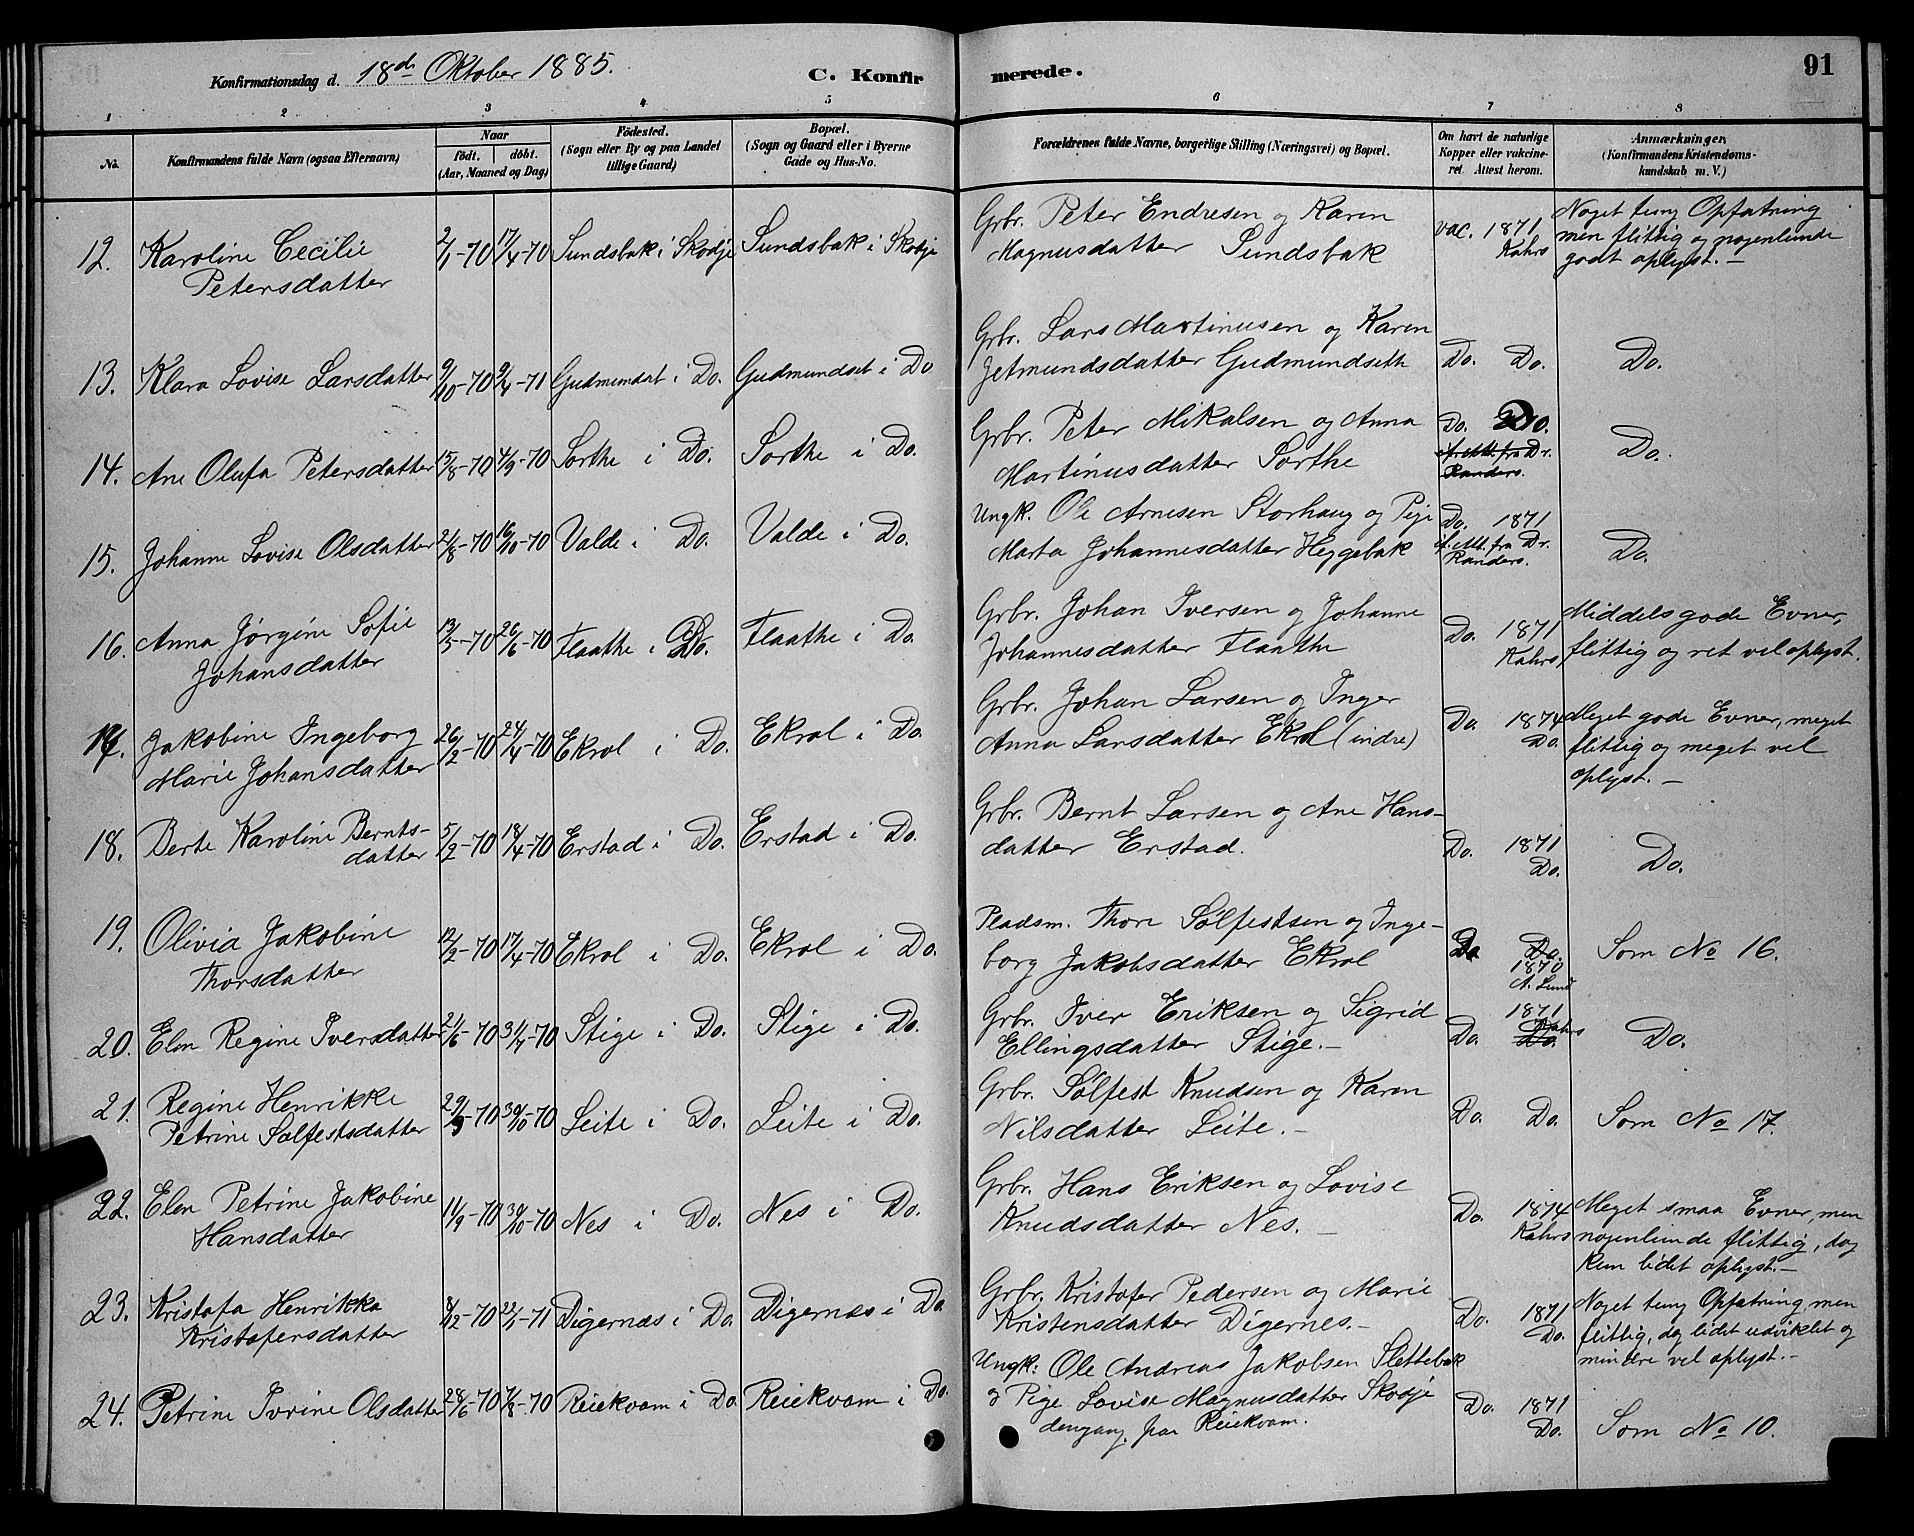 Konfirmationsdag d. 18de Oktober 1885.
C. Konfirmerede.
91
1 2 3 4 5 6 7 8
No.
Konfirmandens fulde Navn (ogsaa Efternavn)
Naar
født. døbt.
(Aar, Maaned og Dag)
Fødested.
(Sogn eller By og paa Landet
tillige Gaard)
Bopæl.
(Sogn og Gaard eller i Byerne
Gade og Hus-No.
Forældrenes fulde Navne, borgerlige Stilling (Næringsvei) og Bopæl.
Om havt de naturlige
Kopper eller vakcine-
ret Attest herom.
Anmærkninger,
(Konfirmandens Kristendoms-
kundskab m. V.)
12. Karoline Cecilie
Petersdatter
2/1-70 17/4-70 Sundsbak i Skodje Sundsbak i Skodje
Grbr. Peter Endresen og Karen
Magnusdatter Sundsbak
vac. 1871
Kahrs
Noget tung Opfatning
men flittig og nogenlunde
godt oplyst.-
13. Klara Lovise Larsdatter 9/10-70 9/4-71 Gudmundset i Do. Gudmundset i Do
Grbr. Lars Martinusen og Karen
Jetmundsdatter Gudmundseth
Do. Do. Do.
14. Ane Olufa Petersdatter 15/8-70 4/9-70 Sorthe i Do. Sorthe i Do.
Grbr. Peter Mikalsen og Anna
Martinusdatter Sorthe
Do. Do.
if. Att. fra Dr.
Randers.
Do.
15. Johanne Lovise Olsdatter 21/8-70 16/10-70 Valde i Do. Valde i Do.
Ungk. Ole Arnesen Storhaug og Pige
Marta Johannesdatter Heggebak
Do. 1871
if. Att. fra Dr.
Randers.
Do.
16. Anna Jørgine Sofie
Johansdatter
13/5-70 26/6-70 Flaathe i Do. Flaathe i Do.
Grbr. Johan Iversen og Johanne
Johannesdatter Flaathe
Do. 1871
Kahrs
Middels gode Evner,
flittig og ret vel oplyst.
17. Jakobine Ingeborg
Marie Johansdatter
26/2-70 24/4-70 Ekrol i Do. Ekrol i Do.
Grbr. Johan Larsen og Inger
Anna Larsdatter Ekrol (indre)
Do. 1874
Do.
Meget gode Evner, meget
flittig og meget vel
oplyst.-
18. Berte Karoline Bernts-
datter
5/2-70 18/4-70 Erstad i Do. Erstad i Do.
Grbr. Bernt Larsen og Ane Hans-
datter Erstad.
Do. 1871
Do.
Do.
19. Olivia Jakobine
Thorsdatter
12/2-70 17/4-70 Ekrol i Do. Ekrol i Do.
Pladsm. Thore Sølfestsen og Inge-
borg Jakobsdatter Ekrol
Do Do.
1870
A. Lund
Som No 16.
20. Elen Regine Iversdatter 21/6-70 31/7-70 Stige i Do. Stige i Do.
Grbr. Iver Eriksen og Sigrid
Ellingsdatter Stige.-
Do. 1871
Kahrs
Do.
Do.
21. Regine Henrikke
Petrine Sølfestsdatter
29/9-70 30/10-70 Leite i Do. Leite i Do.
Grbr. Sølfest Knudsen og Karen
Nilsdatter Leite.-
Do. Do. Som No 17.
22. Elen Petrine Jakobine
Hansdatter
11/9-70 30/10-70 Nes i Do. Nes i Do.
Grbr. Hans Eriksen og Lovise
Knudsdatter Nes.-
Do. 1874
Kahrs
Meget smaa Evner, men
nogenlunde flittig, dog
kun lidet oplyst.-
23. Kristofa Henrikka
Kristofersdatter
8/12-70 22/1-71 Digernæs i Do. Digernes i Do.
Grbr. Kristofer Pedersen og Marie
Kristensdatter Digernes.-
Do. 1871
Do.
Noget tung Opfatning, men
flittig, dog lidet udviklet og
mindre vel oplyst.-
24. Petrine Ivrine Olsdatter 28/6-70 7/8-70 Reiekvam i Do. Reiekvam i Do.
Ungk: Ole Andreas Jakobsen Slettebak
og Pige Lovise Magnusdatter Skodje
dengang paa Reiekvam.
Do. 1871
Do.
Som No 10.